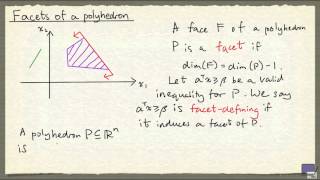 Facets of a polyhedron
A face F of a polyhedron
P is a facet if
dim(F) = dim(P) - 1.
Let aᵀx ≥ β be a valid
inequality for P. We say
aᵀx ≥ β is facet-defining if
it induces a facet of P.
x₂
x₁
A polyhedron P ⊆ ℝⁿ
is